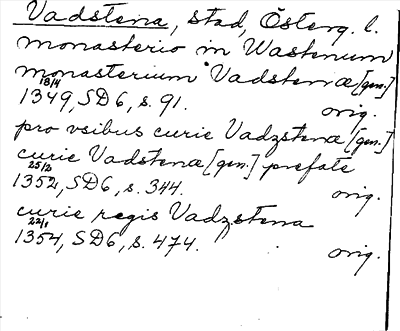 Vadstena, stad, Österg. l.
monasterio in Wastenum
monasterium Vadstenæ [gen.]
18/4
1349, SD 6, s. 91. orig.
pro vsibus curie Vadzstenæ [gen.]
curie Vadstenæ [gen.] prefate
25/2
1352, SD 6, s. 344. orig.
curie regis Vadzstena
22/1
1354, SD 6, s. 474. orig.